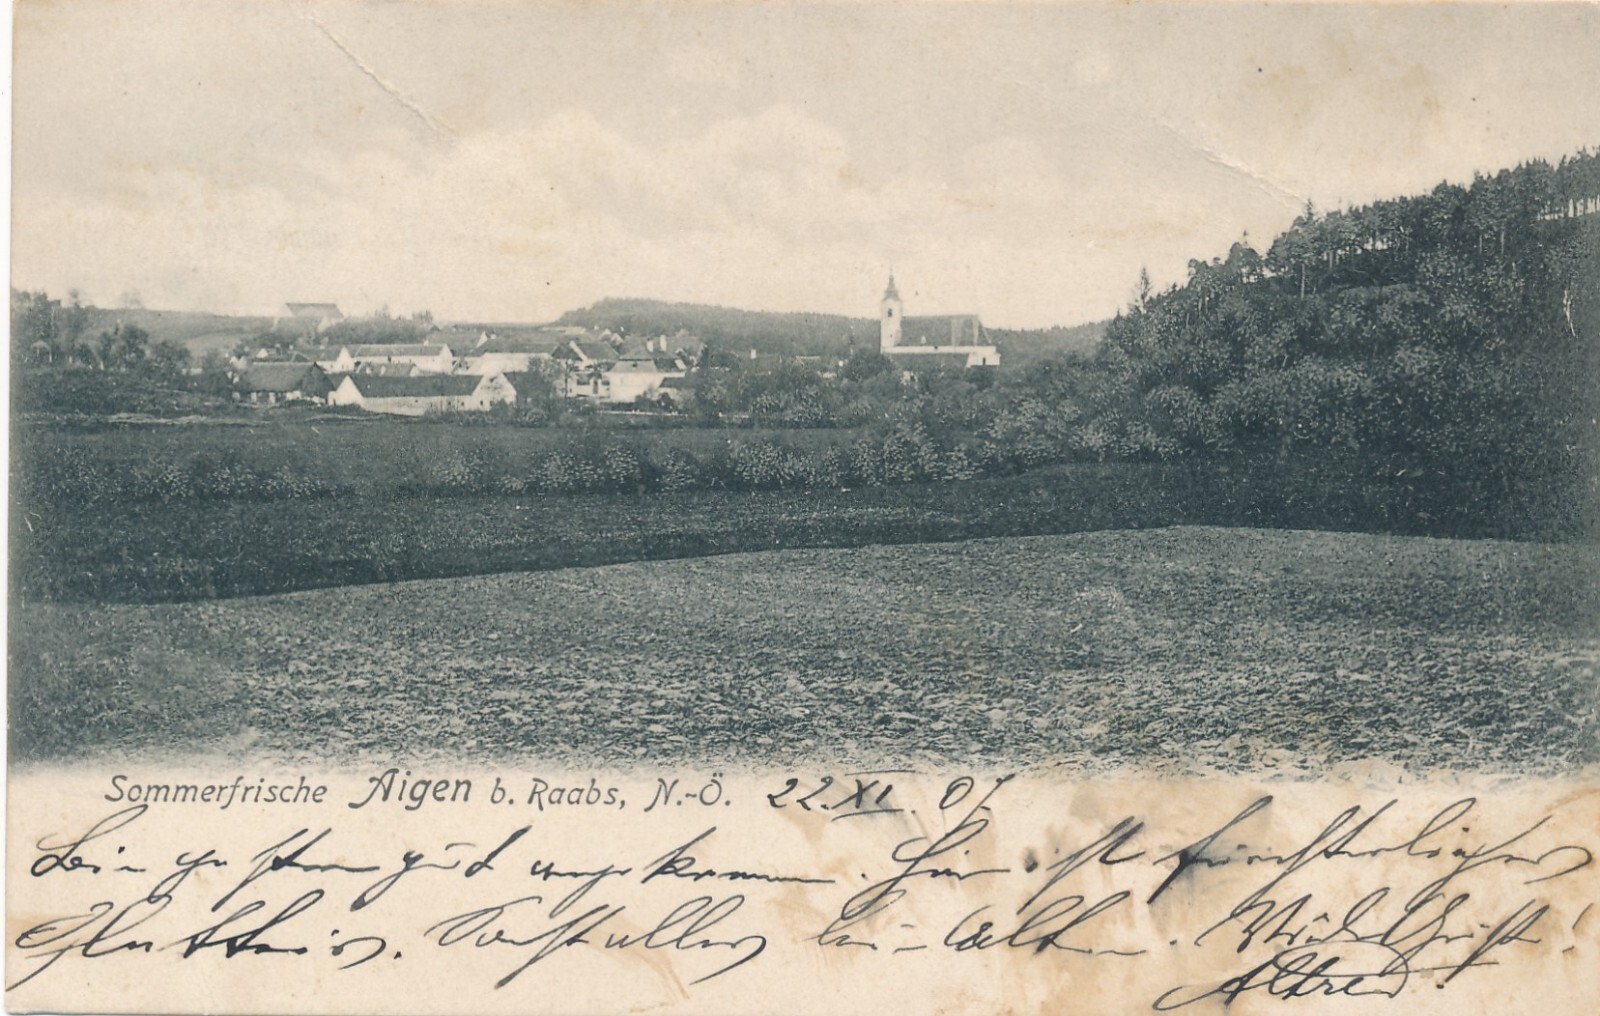 Sommerfrische Aigen b. Raabs, N.-Ö. 22.XI.07
Bin gestern gut angekommen. Hier ist fürchterliches
Sonst alles beim Alten. Viele Grüße!
Alfred.